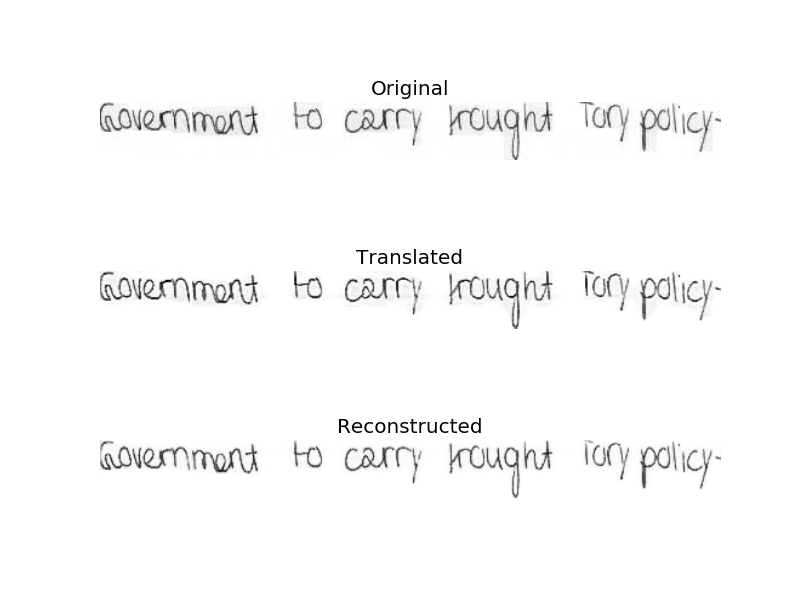 Original
Government to carry trought Tory policy-
Translated
Government to carry trought Tory policy-
Reconstructed
Government to carry trought Tory policy-